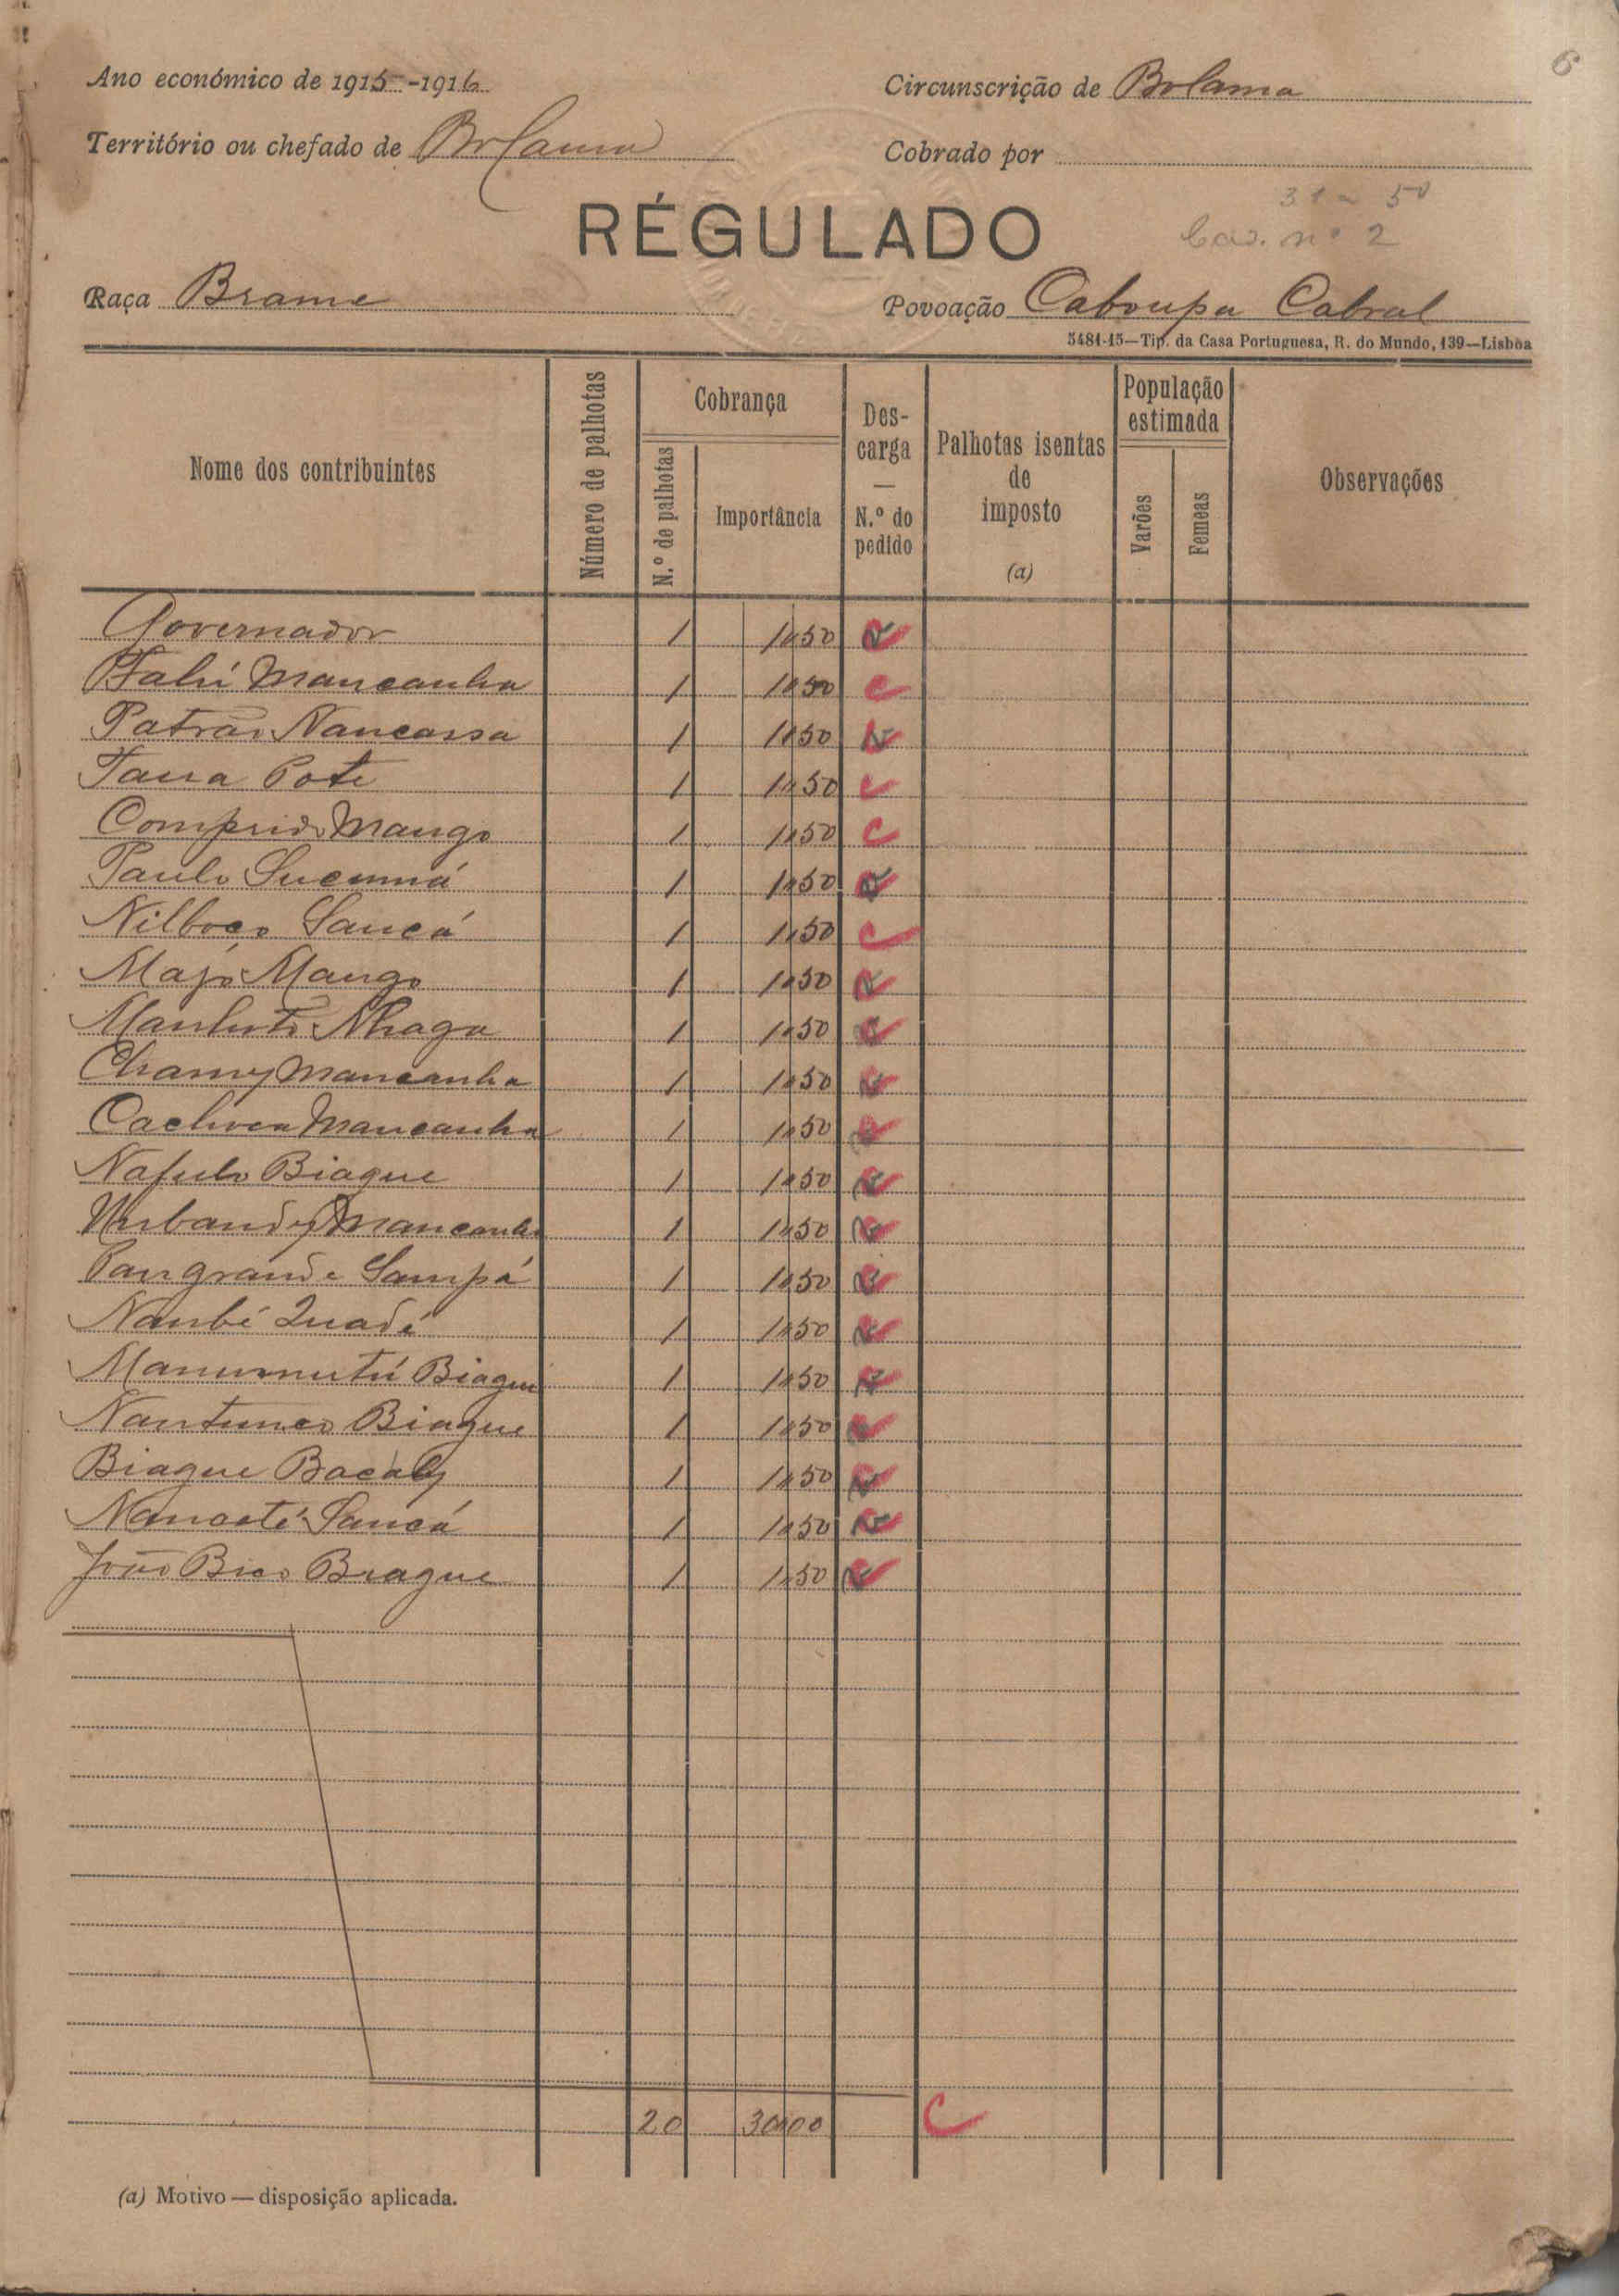 6
Ano económico de 1915-1916
Circunscrição de Bolama
Território ou chefado de Bolama
Cobrado por
31 a 50
Cad. nº 2
RÉGULADO
Raça Brame
Povoação Caboupa Cabral
5481-15—Tip. da Casa Portuguesa, R. do Mundo, 139—Lisboa
Nome dos contribuintes
Número de palhotas
Cobrança
N.º de palhotas
Importância
Descarga
—
N.º do pedido
Palhotas isentas de imposto
(a)
População estimada
Varões
Femeas
Observações
Governador 1 1$50 C
Falú Mancanha 1 1$50 C
Patrão Nancassa 1 1$50 C
Tassa Pote 1 1$50 C
Comprido Mango 1 1$50 C
Paulo Sucumá 1 1$50 C
Nilboco Sancá 1 1$50 C
Majo Mango 1 1$50 C
Nhaga 1 1$50 C
Chamy Mancanha 1 1$50 C
Cachoca Mancanha 1 1$50 C
Nafulo Biague 1 1$50 C
Mancanha 1 1$50 C
Pangrande Sampá 1 1$50 C
Nambé Quadé 1 1$50 C
Biague 1 1$50 C
Nantunco Biague 1 1$50 C
Biague Bacaly 1 1$50 C
Nanoaté Sancá 1 1$50 C
João Bico Biague 1 1$50 C
20 30$00 C
(a) Motivo — disposição aplicada.